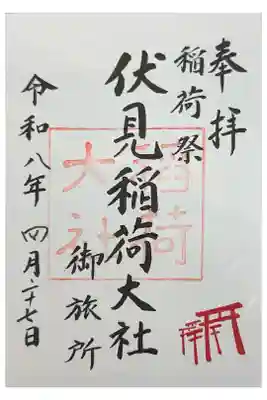 奉拝
稲荷祭
伏見稲荷大社
御旅所
令和八年 四月二十七日
稲荷
大社